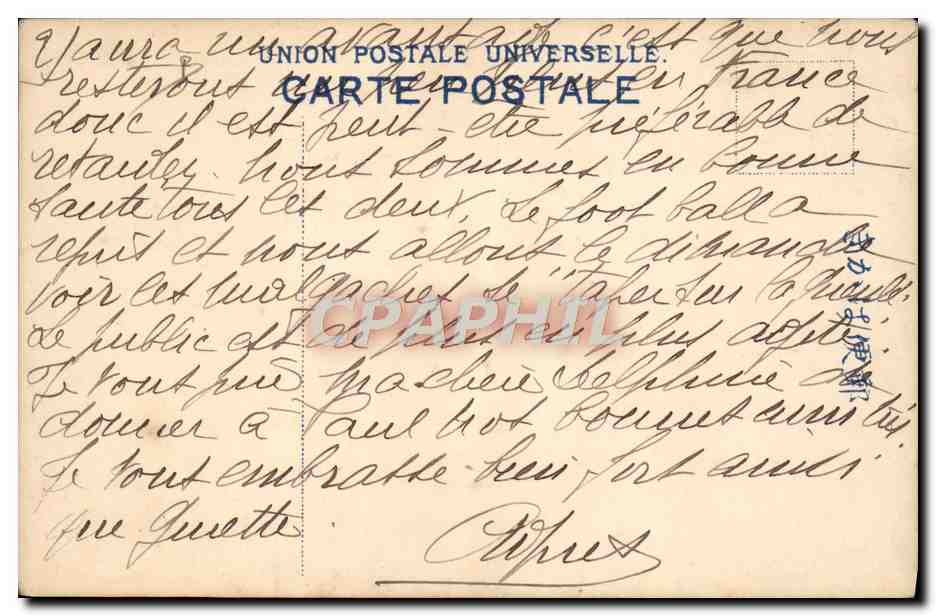 Il y aura un avantage c'est que nous
UNION POSTALE UNIVERSELLE.
resterons en France
CARTE POSTALE
donc il est peut-être préférable de
retarder. Nous sommes en bonne
santé tous les deux. Le foot ball a
repris et nous allons le dimanche
voir les malgaches se "taper sur la gueule"
CPAPHIL
Le public est de plus en plus agité
Je vous prie ma chère Delphine de
donner à Paul nos bonnes amitiés
Je vous embrasse bien fort ainsi
que Ginette
郵便はがき